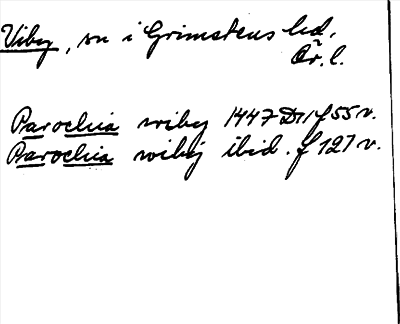 Viby, sn i Grimstens hd,
Ör. l.
Parochia wiby 1447 D11 f 55 v.
Parochia wibij ibid. f 127 v.